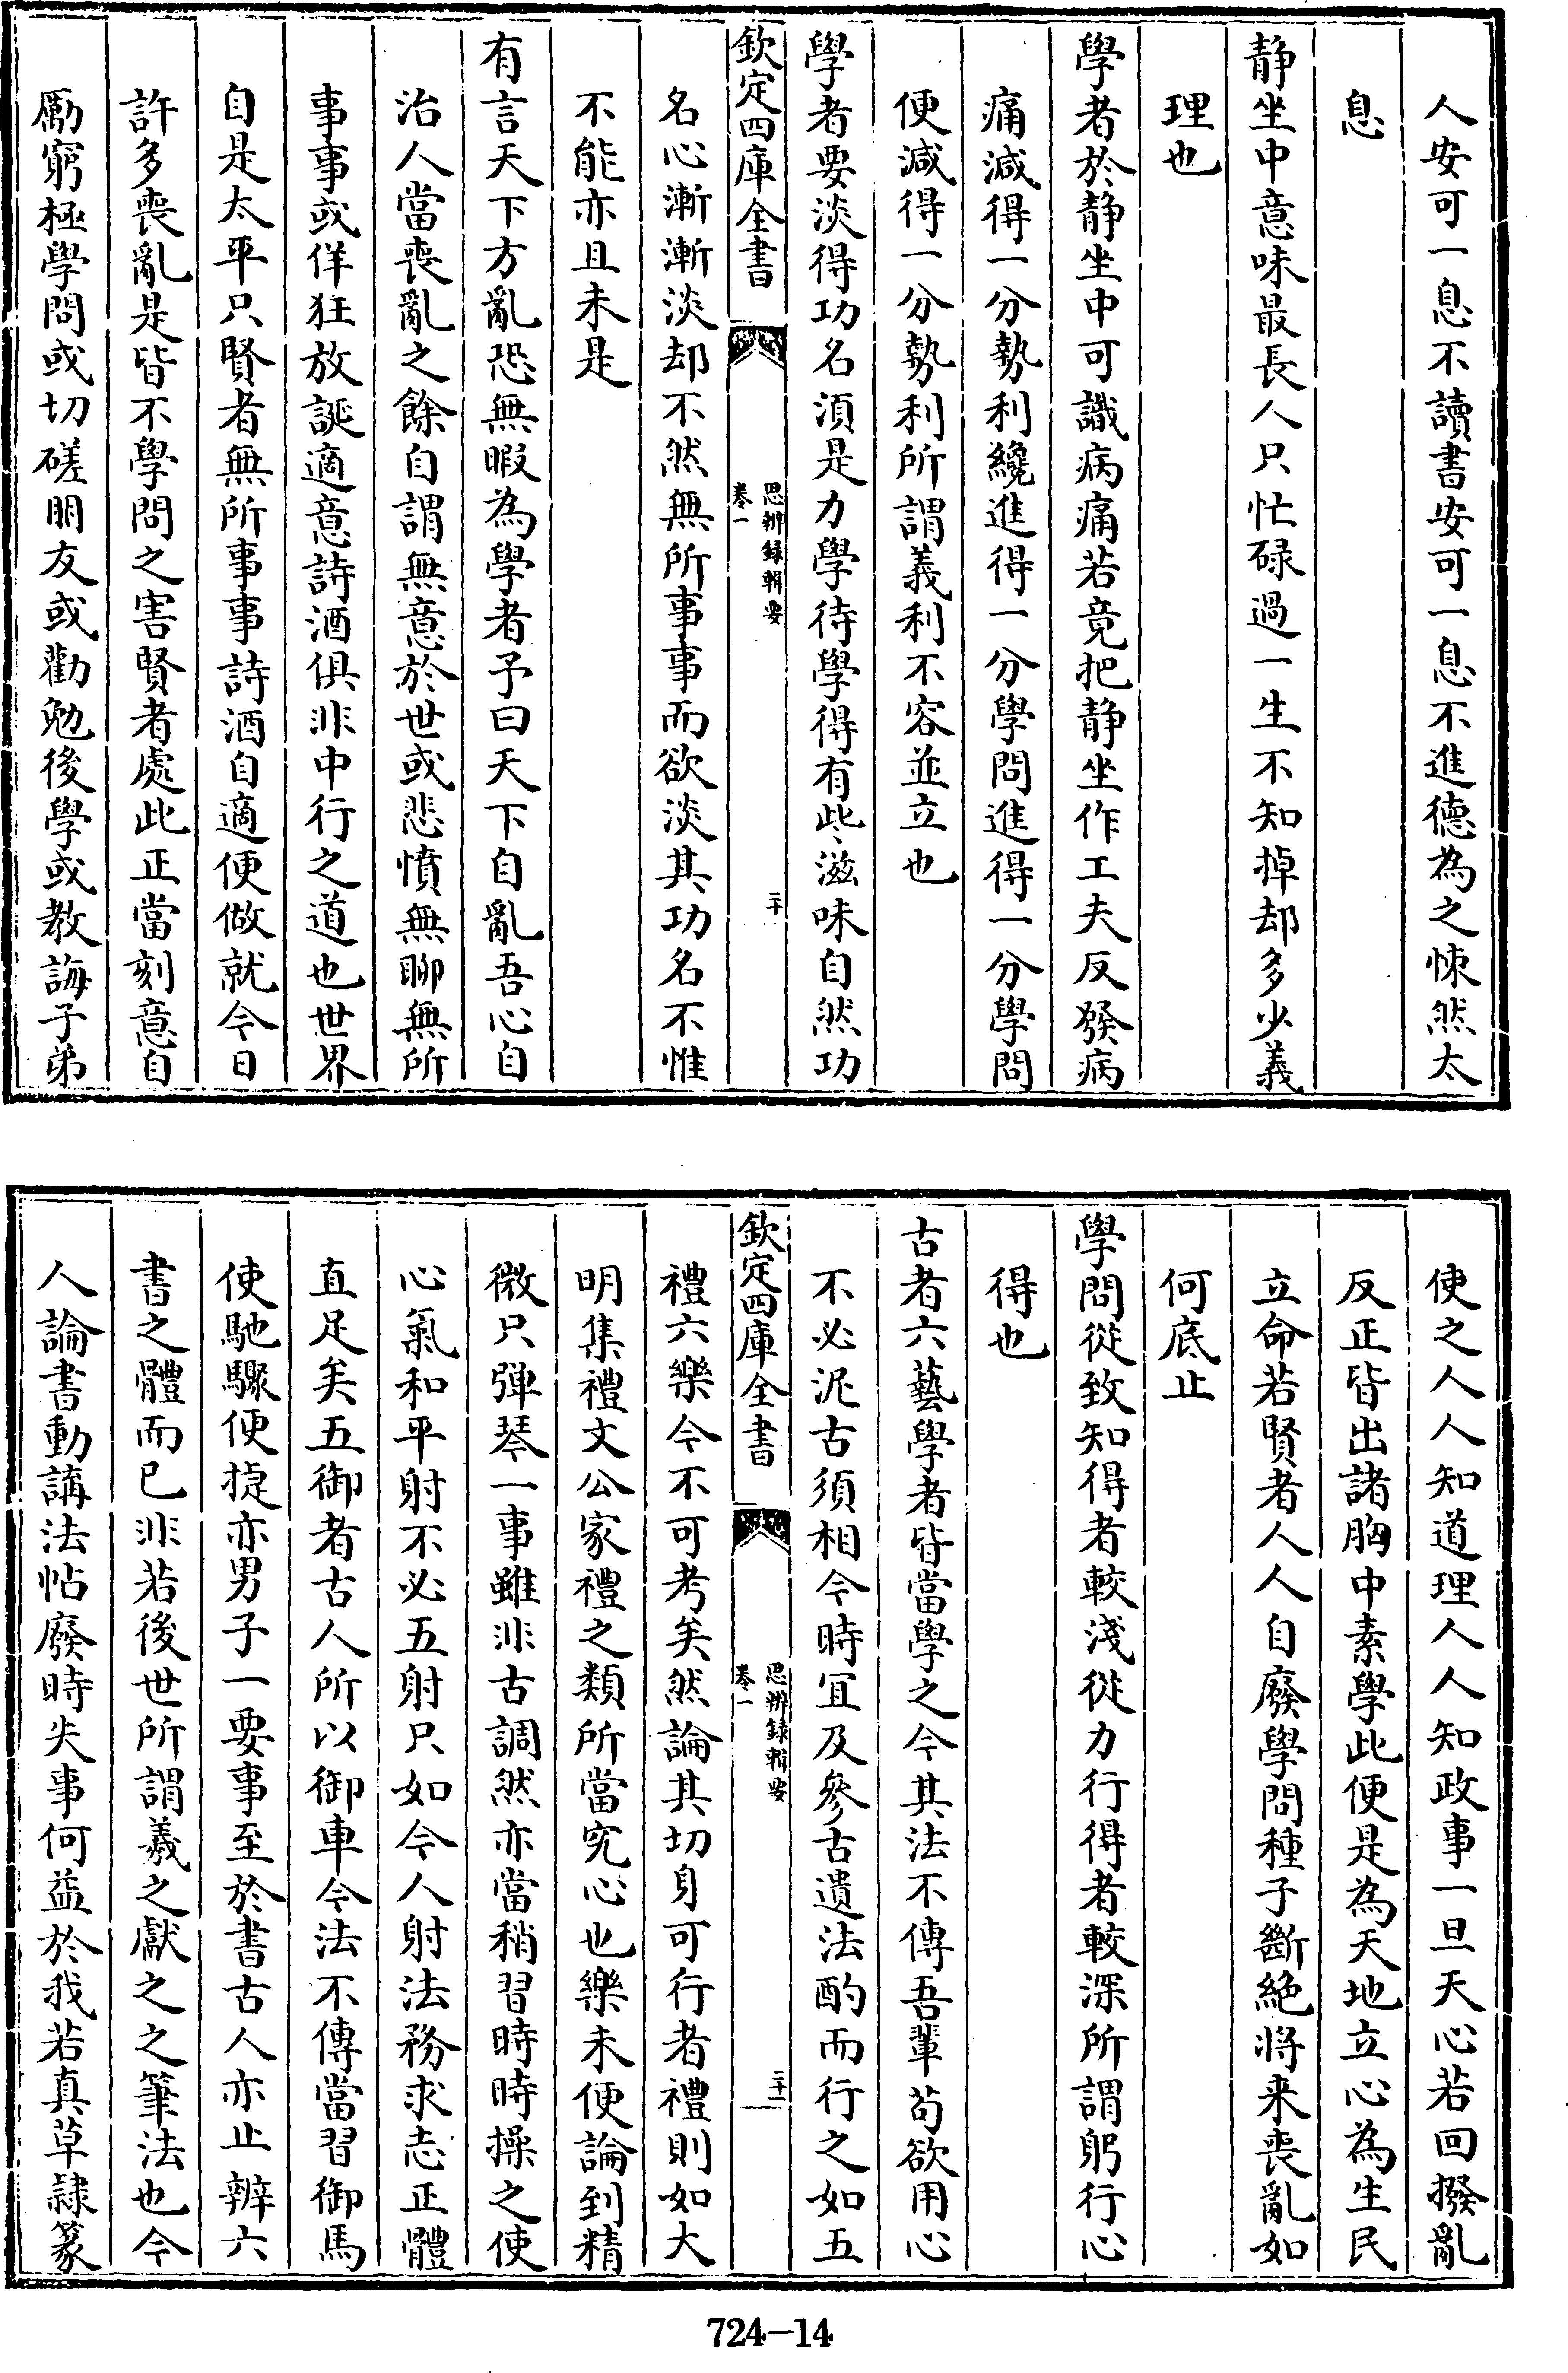 人安可一息不讀書安可一息不進德為之悚然太
息
静坐中意味最長人只忙碌過一生不知掉却多少義
理也
學者於静坐中可識病痛若竟把静坐作工夫反發病
痛減得一分勢利纔進得一分學問進得一分學問
便減得一分勢利所謂義利不容並立也
學者要淡得功名須是力學待學得有些滋味自然功
欽定四庫全書
思辨録輯要
卷一
二十
名心漸漸淡却不然無所事事而欲淡其功名不惟
不能亦且未是
有言天下方亂恐無暇為學者予曰天下自亂吾心自
治人當喪亂之餘自謂無意於世或悲憤無聊無所
事事或佯狂放誕適意詩酒俱非中行之道也世界
自是太平只賢者無所事事詩酒自適便做就今日
許多喪亂是皆不學問之害賢者處此正當刻意自
勵窮極學問或切磋朋友或勸勉後學或教誨子弟
使之人人知道理人人知政事一旦天心若回撥亂
反正皆出諸胸中素學此便是為天地立心為生民
立命若賢者人人自廢學問種子斷絶將来喪亂如
何底止
學問從致知得者較淺從力行得者較深所謂躬行心
得也
古者六藝學者皆當學之今其法不傳吾輩茍欲用心
不必泥古須相今時宜及參古遺法酌而行之如五
欽定四庫全書
思辨録輯要
卷一
二十一
禮六樂今不可考矣然論其切身可行者禮則如大
明集禮文公家禮之類所當究心也樂未便論到精
微只彈琴一事雖非古調然亦當稍習時時操之使
心氣和平射不必五射只如今人射法務求志正體
直足矣五御者古人所以御車今法不傳當習御馬
使馳驟便捷亦男子一要事至於書古人亦止辨六
書之體而已非若後世所謂羲之獻之之筆法也今
人論書動講法帖廢時失事何益於我若真草隸篆
724-14